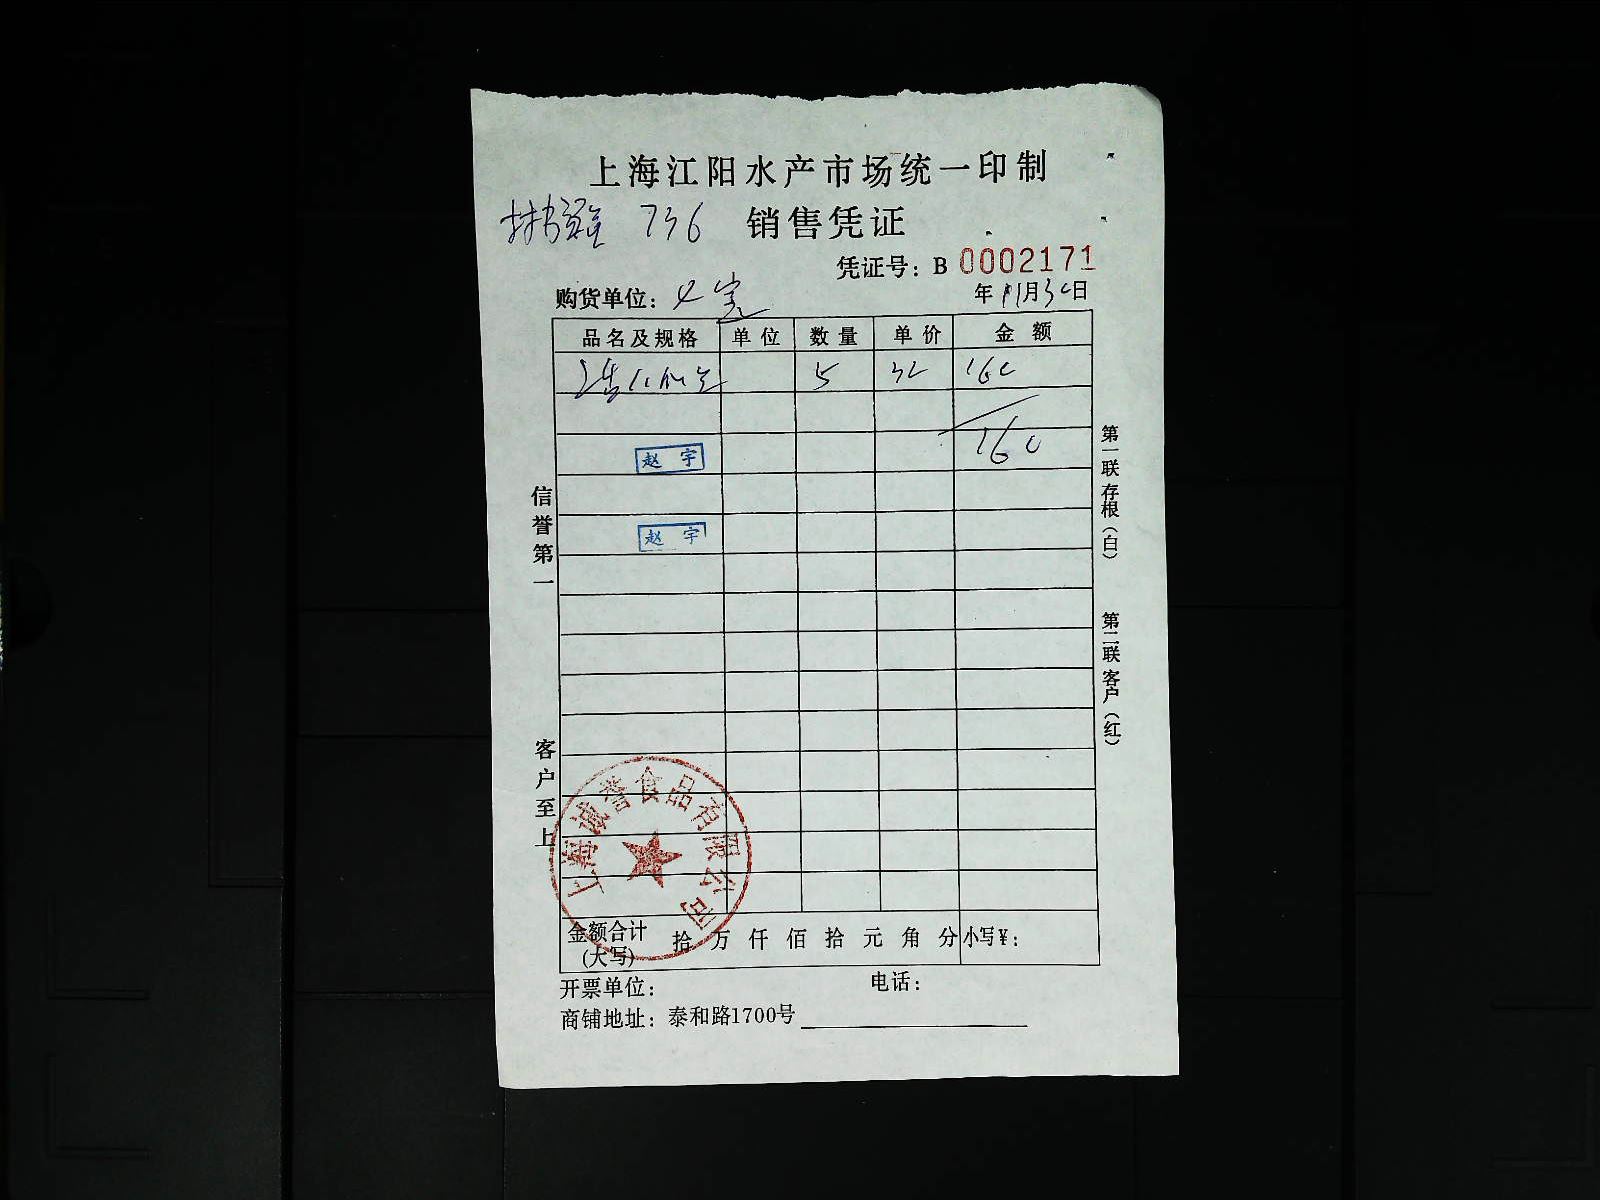 上海江阳水产市场统一印制
736 销售凭证
凭证号：B 0002171
购货单位：
年 11月30日
品名及规格 单位 数量 单价 金额
5 32 160
160
赵宇
赵宇
信誉第一
客户至上
第一联存根（白）
第二联客户（红）
上海诚誉食品有限公司
金额合计（大写） 拾 万 仟 佰 拾 元 角 分 小写￥：
开票单位： 电话：
商铺地址：泰和路1700号